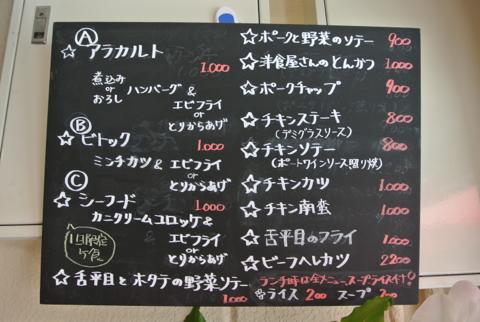 Ⓐ
☆アラカルト 1.000
煮込み
or
おろし ハンバーグ &
エビフライ
or
とりからあげ
Ⓑ
☆ビトック 1.000
ミンチカツ & エビフライ
or
とりからあげ
Ⓒ
☆シーフード 1.000
カニクリームコロッケ&
1日限定
5食
エビフライ
or
とりからあげ
☆舌平目とホタテの野菜ソテー
1.000
☆ポークと野菜のソテー 900
☆洋食屋さんのとんかつ 1.000
☆ポークチャップ 900
☆チキンステーキ 800
(デミグラスソース)
☆チキンソテー 800
(ポートワインソース照り焼)
☆チキンカツ 1.000
☆チキン南蛮 1.000
☆舌平目のフライ 1.000
☆ビーフヘレカツ 2200
ランチ時は全メニュースープライス付!
ライス 200 スープ 200